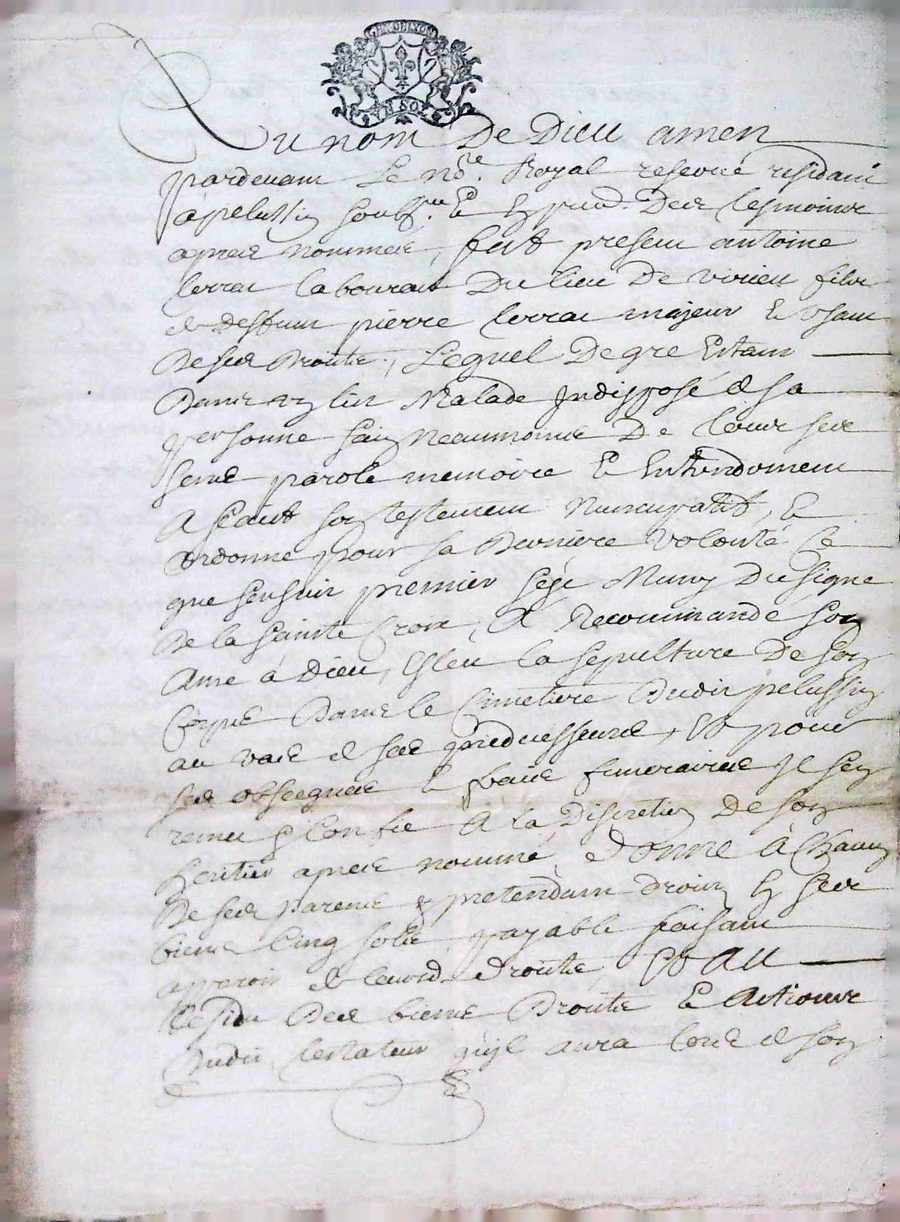 UN SOL
Au nom De Dieu amen
pardevant Le no.re Royal reservé residant
à pelussin soubz.né & En pnce. Des tesmoins
apres nommes, fust present antoine
laboureur Du lieu De virieu filz
de deffunt pierre majeur & usant
De ses Droits, Lequel De gre Estant
Dans un lit Malade Indispposé de sa
personne sain neaumoins De tous ses
sens parole memoire & Entendement
A faict son testement Nuncupatif, &
ordonne pour sa Derniere volonté Ce
que sensuit premier sest Muny Du signe
De la Sainte Croix, A Recommandé son
Ame à Dieu, Esleu la sepulture De son
Corps Dans le Cimetiere Dudit pelussin
au vas de ses predecesseurs, Et pour
ses obseques & frais funeraires Il sen
remet & Confie A la Discretion De son
heritier apres nommé, donne à Chacun
De ses parens & pretendant Droit En ses
biens Cinq sols payable faisant
apparoir de leursd. droits, Et Au
Residu Des biens Droits & Actions
Dudit testateur quil aura lors de son